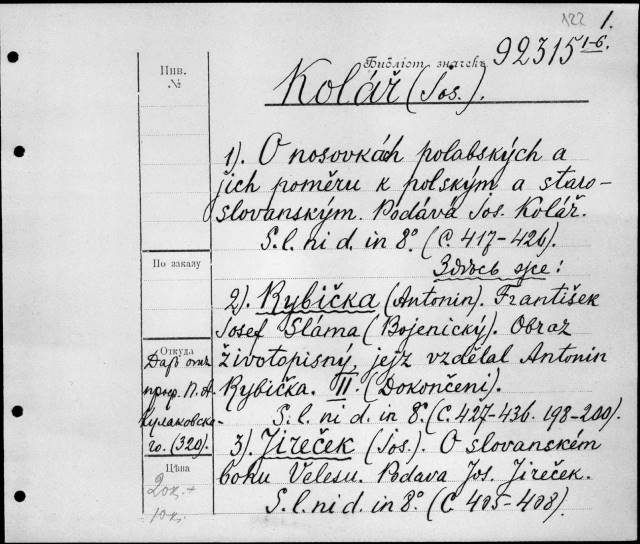 122 1.
Библіот. значекъ 92315 1-6.
Инв.
№
Kolář (Jos.).
1). O nosovkách polabských a
jich poměru k polským a staro-
slovanským. Podává Jos. Kolář.
S. l. ni d. in 8°. (C. 417-426).
Здѣсь же:
По заказу
2). Rybička (Antonin). František
Josef Sláma (Bojenický). Obraz
životopisný, jejz vzdělal Antonin
Rybička. II. (Dokončeni).
S. l. ni d. in 8°. (C. 427-436. 198-200).
Откуда
Даръ отъ
проф. П. А.
Кулаковска-
го. (320).
3) Jireček (Jos.). O slovanském
bohu Velesu. Podava Jos. Jireček.
S. l. ni d. in 8° (C 405-408).
Цѣна
20к.+
10к.